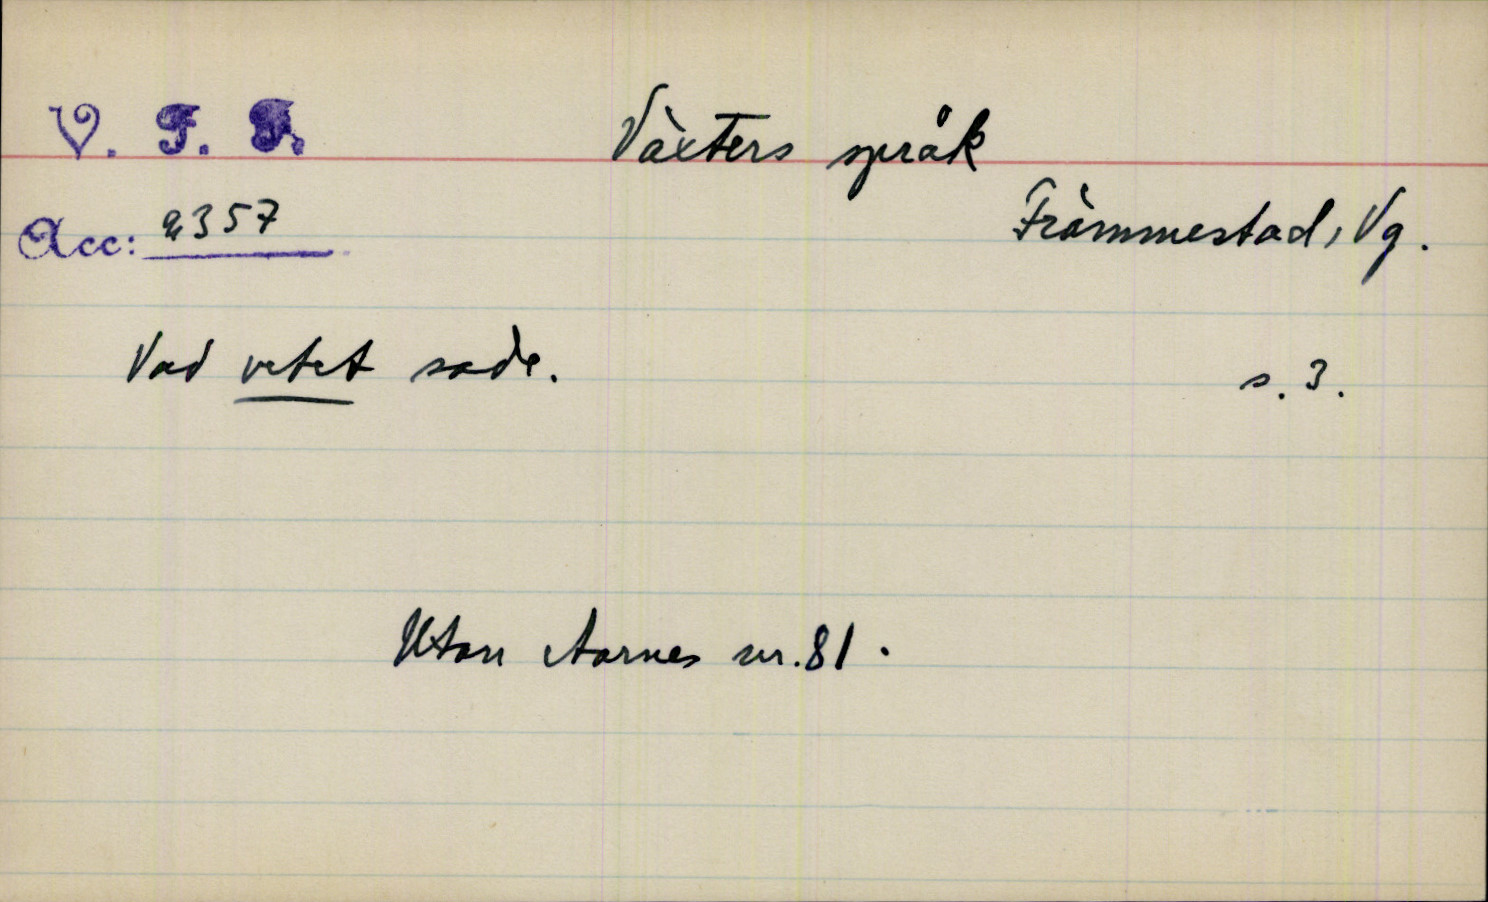 V. F. F.
Växters språk
Främmestad, Vg.
Acc: 2357
Vad vetet sade. s. 3.
Utan Aarnes nr. 81.